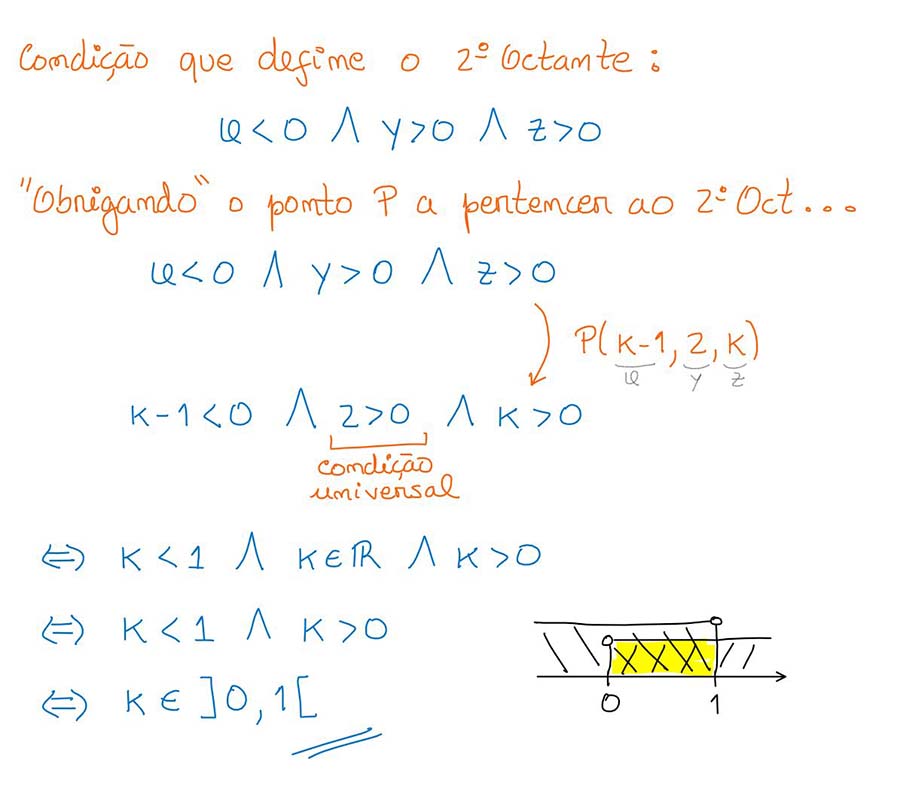 Condição que define o 2º Octante:
x<0 ∧ y>0 ∧ z>0
"Obrigando" o ponto P a pertencer ao 2º Oct...
x<0 ∧ y>0 ∧ z>0
P(k-1, 2, k)
x y z
k-1<0 ∧ 2>0 ∧ k>0
condição
universal
⇔ k<1 ∧ k∈ℝ ∧ k>0
⇔ k<1 ∧ k>0
⇔ k∈]0,1[
0 1